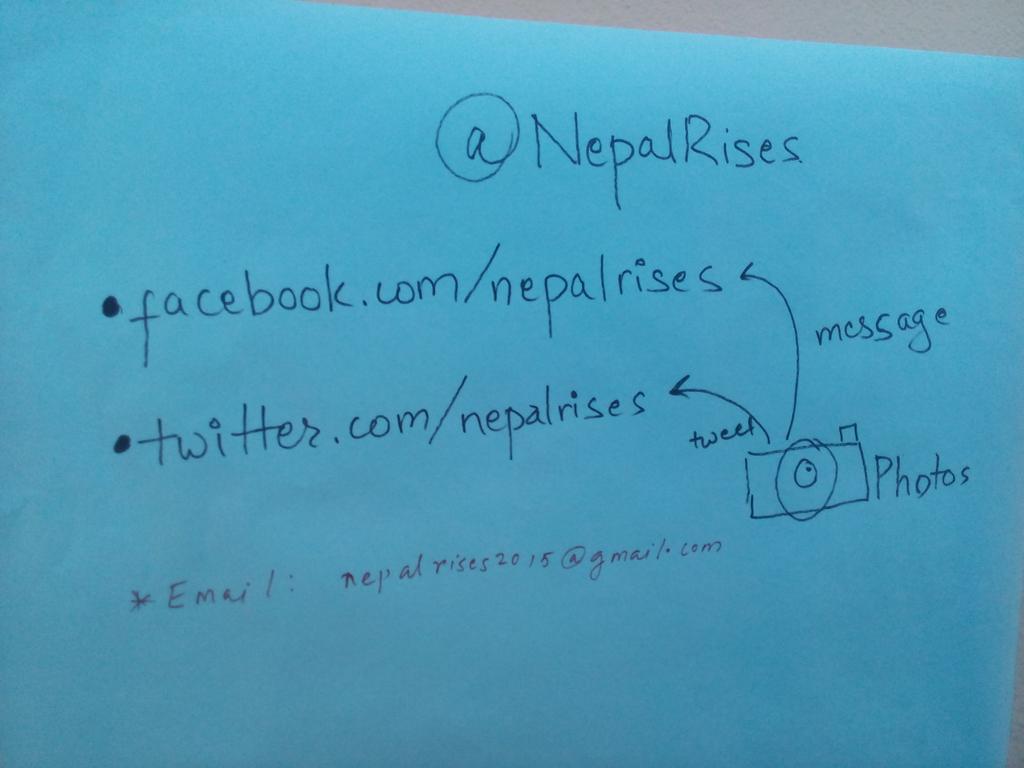 @NepalRises
• facebook.com/nepalrises
message
• twitter.com/nepalrises
tweet
Photos
* Email: nepalrises2015@gmail.com